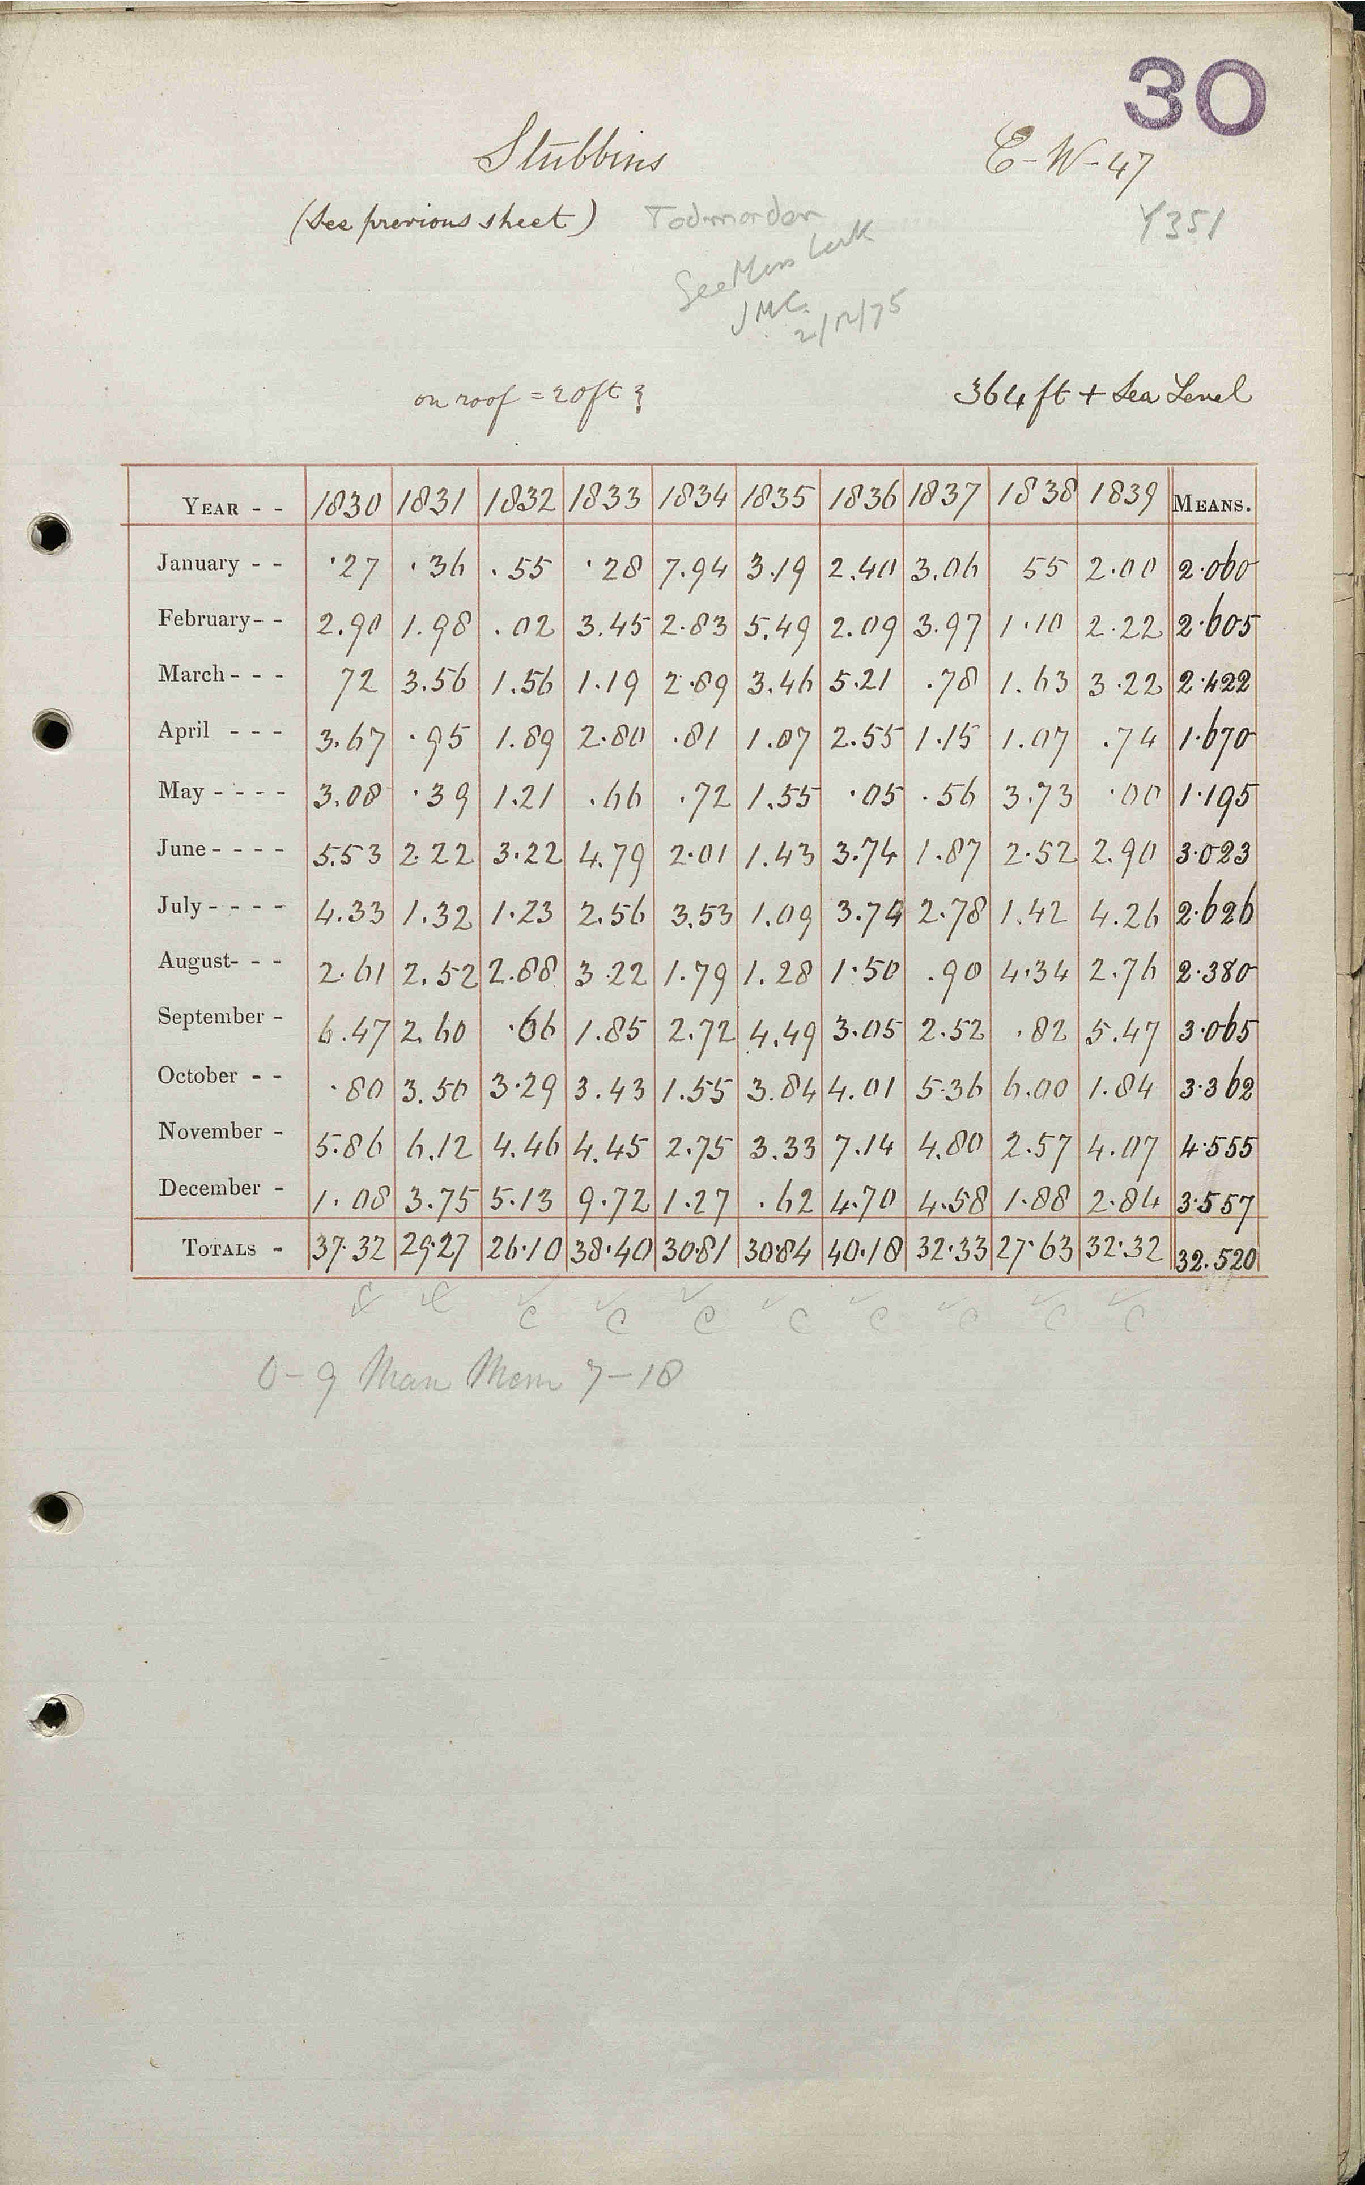 30
Stubbins
E-W-47
(See previous sheet) Todmorden
Y351
See Moss Lock
JMC.
2/12/75
on roof = 20ft
364 ft + Sea Level
YEAR - - 1830 1831 1832 1833 1834 1835 1836 1837 1838 1839 MEANS.
January - - ·27 ·36 .55 ·28 7.94 3.19 2.40 3.06 55 2.00 2·060
February - - 2.90 1.98 .02 3.45 2.83 5.49 2.09 3.97 1.10 2.22 2·605
March - - - 72 3.56 1.56 1.19 2.89 3.46 5.21 .78 1.63 3.22 2·422
April - - - 3.67 ·95 1.89 2.80 .81 1.07 2.55 1.15 1.07 .74 1·670
May - - - - 3.08 ·39 1.21 .66 .72 1.55 ·05 .56 3.73 ·00 1·195
June - - - - 5.53 2.22 3.22 4.79 2.01 1.43 3.74 1.87 2.52 2.90 3·023
July - - - - 4.33 1.32 1.23 2.56 3.53 1.09 3.74 2.78 1.42 4.26 2·626
August - - - 2.61 2.52 2.88 3.22 1.79 1.28 1.50 .90 4.34 2.76 2·380
September - 6.47 2.60 ·66 1.85 2.72 4.49 3.05 2.52 .82 5.47 3·065
October - - ·80 3.50 3.29 3.43 1.55 3.84 4.01 5.36 6.00 1.84 3·362
November - 5.86 6.12 4.46 4.45 2.75 3.33 7.14 4.80 2.57 4.07 4·555
December - 1.08 3.75 5.13 9.72 1.27 .62 4.70 4.58 1.88 2.84 3·557
TOTALS - 37·32 29·27 26·10 38·40 30·81 30·84 40·18 32·33 27·63 32·32 32.520
C C C C C C C C
0-9 Man Mem 7-18